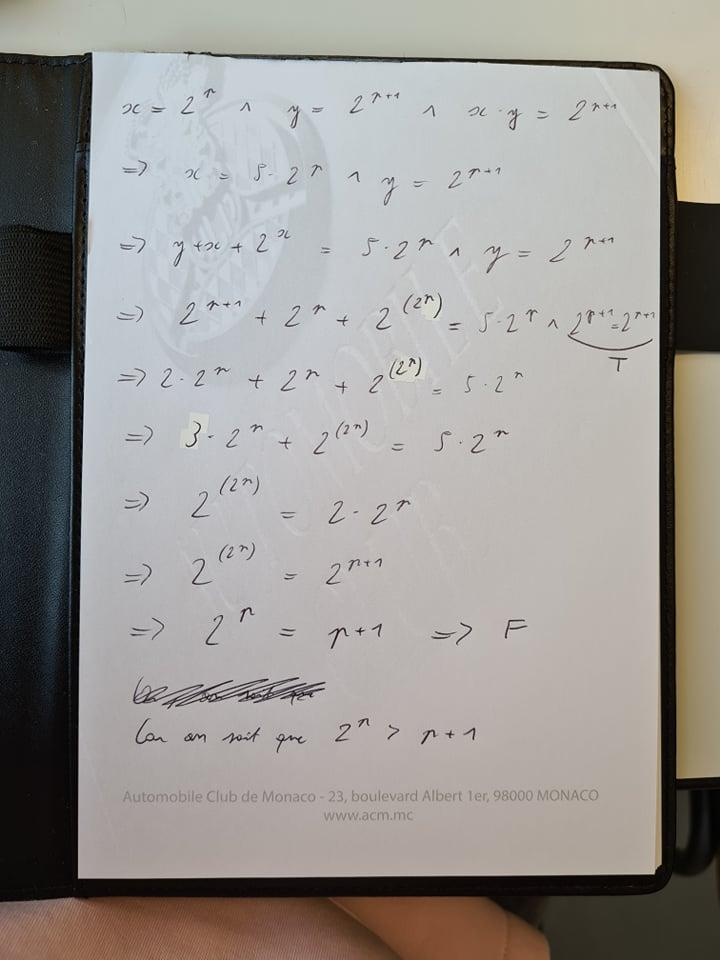 x = 2^n ∧ y = 2^{n+1} ∧ x·y = 2^{n+1}
=> x = 5·2^n ∧ y = 2^{n+1}
=> y+x+2^x = 5·2^n ∧ y = 2^{n+1}
=> 2^{n+1} + 2^n + 2^{(2^n)} = 5·2^n ∧ 2^{n+1} = 2^{n+1}
T
=> 2·2^n + 2^n + 2^{(2^n)} = 5·2^n
=> 3·2^n + 2^{(2^n)} = 5·2^n
=> 2^{(2^n)} = 2·2^n
=> 2^{(2^n)} = 2^{n+1}
=> 2^n = n+1 => F
Car on sait que 2^n > n+1
Automobile Club de Monaco - 23, boulevard Albert 1er, 98000 MONACO
www.acm.mc